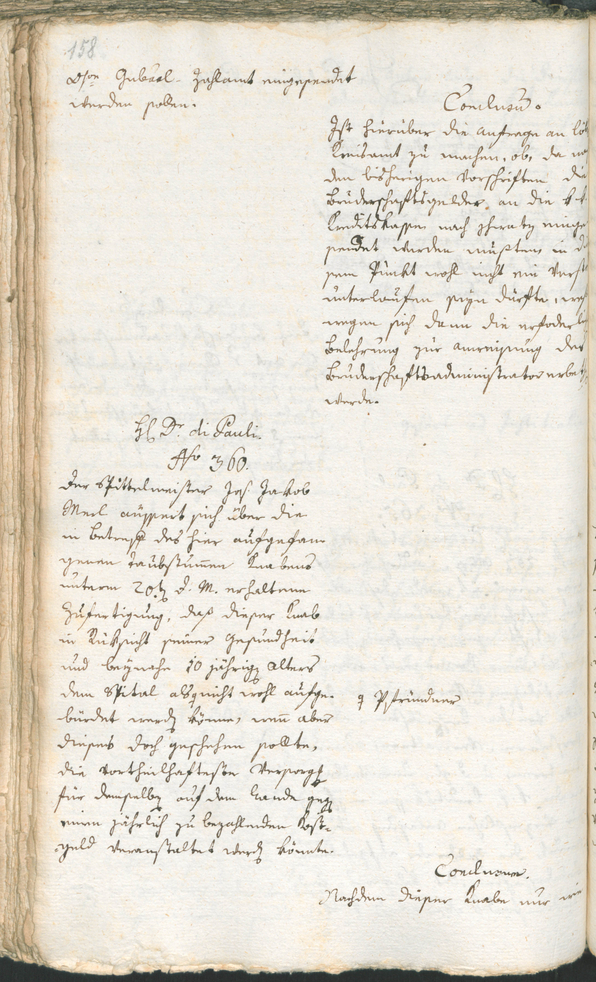 158
Gubral- Zahlamt eingesendet
werden sollen.
Conclusum.
Ist hierüber die Anfrage an löb
Kreisamt zu machen, ob, da na
den bisherigen Vorschriften die
Bruderschaftsgelder an die k-k
Kreditskasse nach Schwatz einge
sendet werden mußten, in die
sem Punkt wohl nicht ein Versto
unterlaufen seyn dürfte, wes
wegen sich dann die erfoderli
Belehrung zur Anweisung der
Bruderschaftsadministrator erbet
werde.
H Dr di Pauli.
No 360.
Der Spittelmeister Jos. Jakob
Merl äussert sich über die
in Betreff des hier aufgefan
genen taubstummen Knabens
unterm 20t d. M. erhaltene
Zufertigung, daß dieser Knab
in Rüksicht seiner Gesundheit
und beynahe 10 jährigen Alters
dem Spital als nicht wohl aufge-
Pfründner
bürdet werden könne, wenn aber
dieses doch geschehen sollte,
die vortheilhafteste Versorgung
für denselben auf dem Lande gegen
einen jährlich zu bezahlenden Kost-
geld veranstaltet werden könnte.
Conclusum.
Nachdem dieser Knabe nur wie